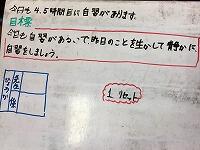 今日も4.5時間目に自習があります。
目標
今日も自習があるいで昨日のことを生かして静かに
自習をしましょう。
前
後
1 リセット